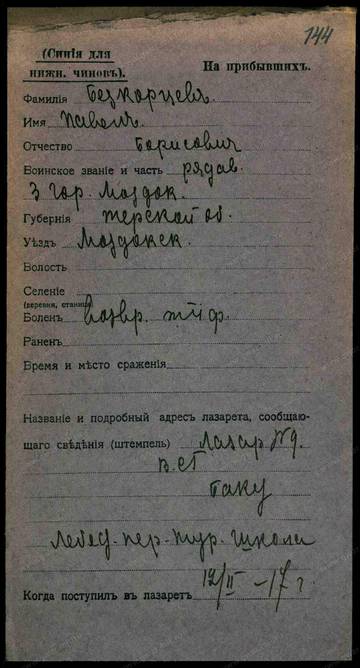 144
(Синія для
нижн. чиновъ).
На прибывшихъ.
Фамилія Безкорцевъ
Имя Павелъ
Отчество Борисовичъ
Воинское званіе и часть рядов.
3 гор. Моздок.
Губернія Терской об.
Уѣздъ Моздокск.
Волость
Селеніе
(деревня, станица)
Боленъ возвр. тиф.
Раненъ
Время и мѣсто сраженія
Названіе и подробный адресъ лазарета, сообщаю-
щаго свѣдѣнія (штемпель) Лазар. №9.
В.С.Г.
Баку
пер. школы
Когда поступилъ въ лазаретъ 12/II -17 г.